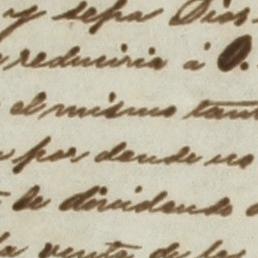 y sepa Dios
reduciria á O.
el mismo tan
por donde no
se dividendo
la venta de los